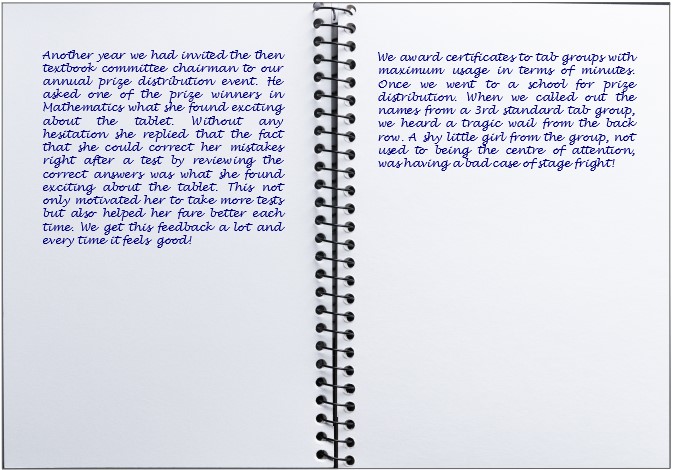 Another year we had invited the then
textbook committee chairman to our
annual prize distribution event. He
asked one of the prize winners in
Mathematics what she found exciting
about the tablet. Without any
hesitation she replied that the fact
that she could correct her mistakes
right after a test by reviewing the
correct answers was what she found
exciting about the tablet. This not
only motivated her to take more tests
but also helped her fare better each
time. We get this feedback a lot and
every time it feels good!
We award certificates to tab groups with
maximum usage in terms of minutes.
Once we went to a school for prize
distribution. When we called out the
names from a 3rd standard tab group,
we heard a tragic wail from the back
row. A shy little girl from the group, not
used to being the centre of attention,
was having a bad case of stage fright!